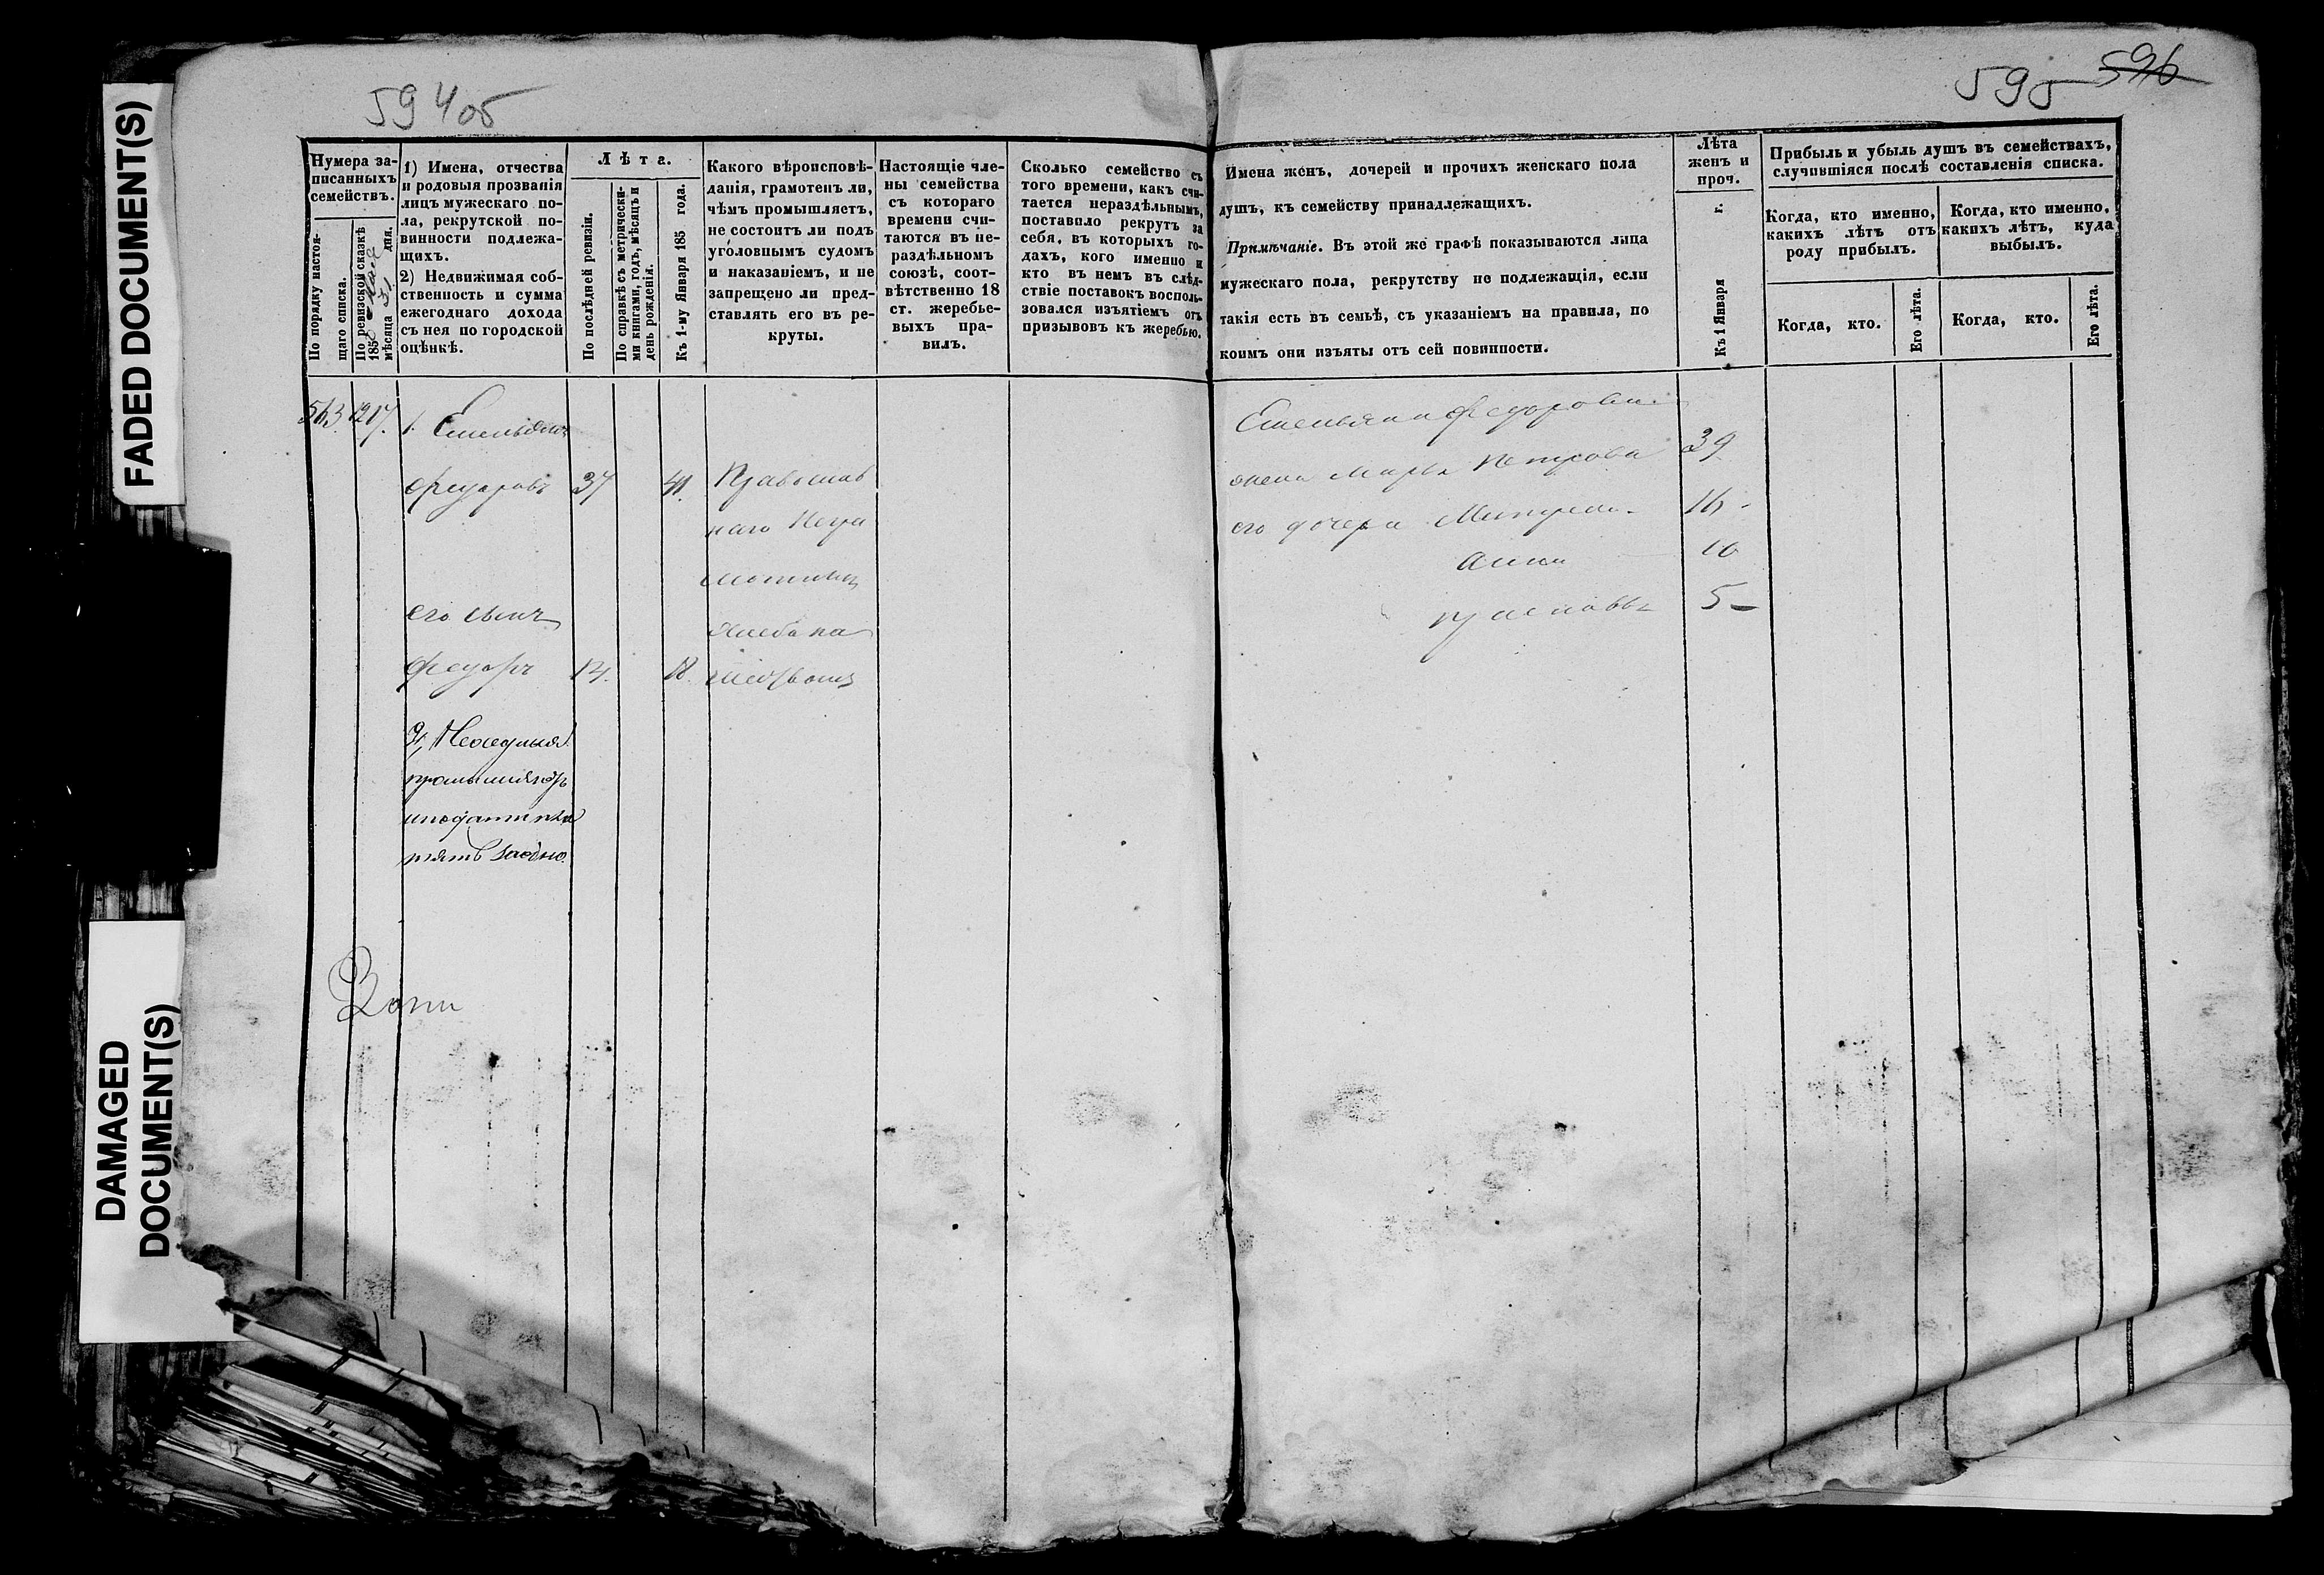 FADED DOCUMENT(S)
DAMAGED
DOCUMENT(S)
594об
595 596
Нумера за-
писанныхъ
семействъ.
По порядку настоя-
щаго списка.
По ревизской сказкѣ
1850 мѣсяца 31 дня.
1) Имена, отчества
и родовыя прозванія
лицъ мужескаго по-
ла, рекрутской по-
винности подлежа-
щихъ.
2) Недвижимая соб-
ственность и сумма
ежегоднаго дохода
съ нея по городской
оцѣнкѣ.
Лѣта.
По послѣдней ревизіи.
По справкѣ съ метрически-
ми книгами, годъ, мѣсяцъ и
день рожденія.
Къ 1-му Января 185 года.
Какого вѣроисповѣ-
данія, грамотенъ ли,
чѣмъ промышляетъ,
не состоитъ ли подъ
уголовнымъ судомъ
и наказаніемъ, и не
запрещено ли пред-
ставлять его въ ре-
круты.
Настоящіе чле-
ны семейства
съ котораго
времени счи-
таются въ не-
раздѣльномъ
союзѣ, соот-
вѣтственно 18
ст. жеребье-
выхъ пра-
вилъ.
Сколько семейство съ
того времени, какъ счи-
тается нераздѣльнымъ,
поставило рекрутъ за
себя, въ которыхъ го-
дахъ, кого именно и
кто въ немъ въ слѣд-
ствіе поставокъ восполь-
зовался изъятіемъ отъ
призывовъ къ жеребью.
Имена женъ, дочерей и прочихъ женскаго пола
душъ, къ семейству принадлежащихъ.
Примѣчаніе. Въ этой же графѣ показываются лица
мужескаго пола, рекрутству не подлежащія, если
такія есть въ семьѣ, съ указаніемъ на правила, по
коимъ они изъяты отъ сей повинности.
Лѣта
женъ и
проч.
Къ 1 Января г.
Прибыль и убыль душъ въ семействахъ,
случившіяся послѣ составленія списка.
Когда, кто именно,
какихъ лѣтъ отъ
роду прибылъ.
Когда, кто именно,
какихъ лѣтъ, куда
выбылъ.
Когда, кто.
Его лѣта.
Когда, кто.
Его лѣта.
563 1217. 1. Емельянъ
Федоровъ 37 41 Православ
наго Негра
мотный
хлебопа
шествомъ
его сынъ
Федоръ 14. 18.
2, Неоседлыя
промышляютъ
и подати пла
тятъ заодно.
Емельяна Федорова
жена Марья Петрова 39
его дочери 16
Анна 10
5